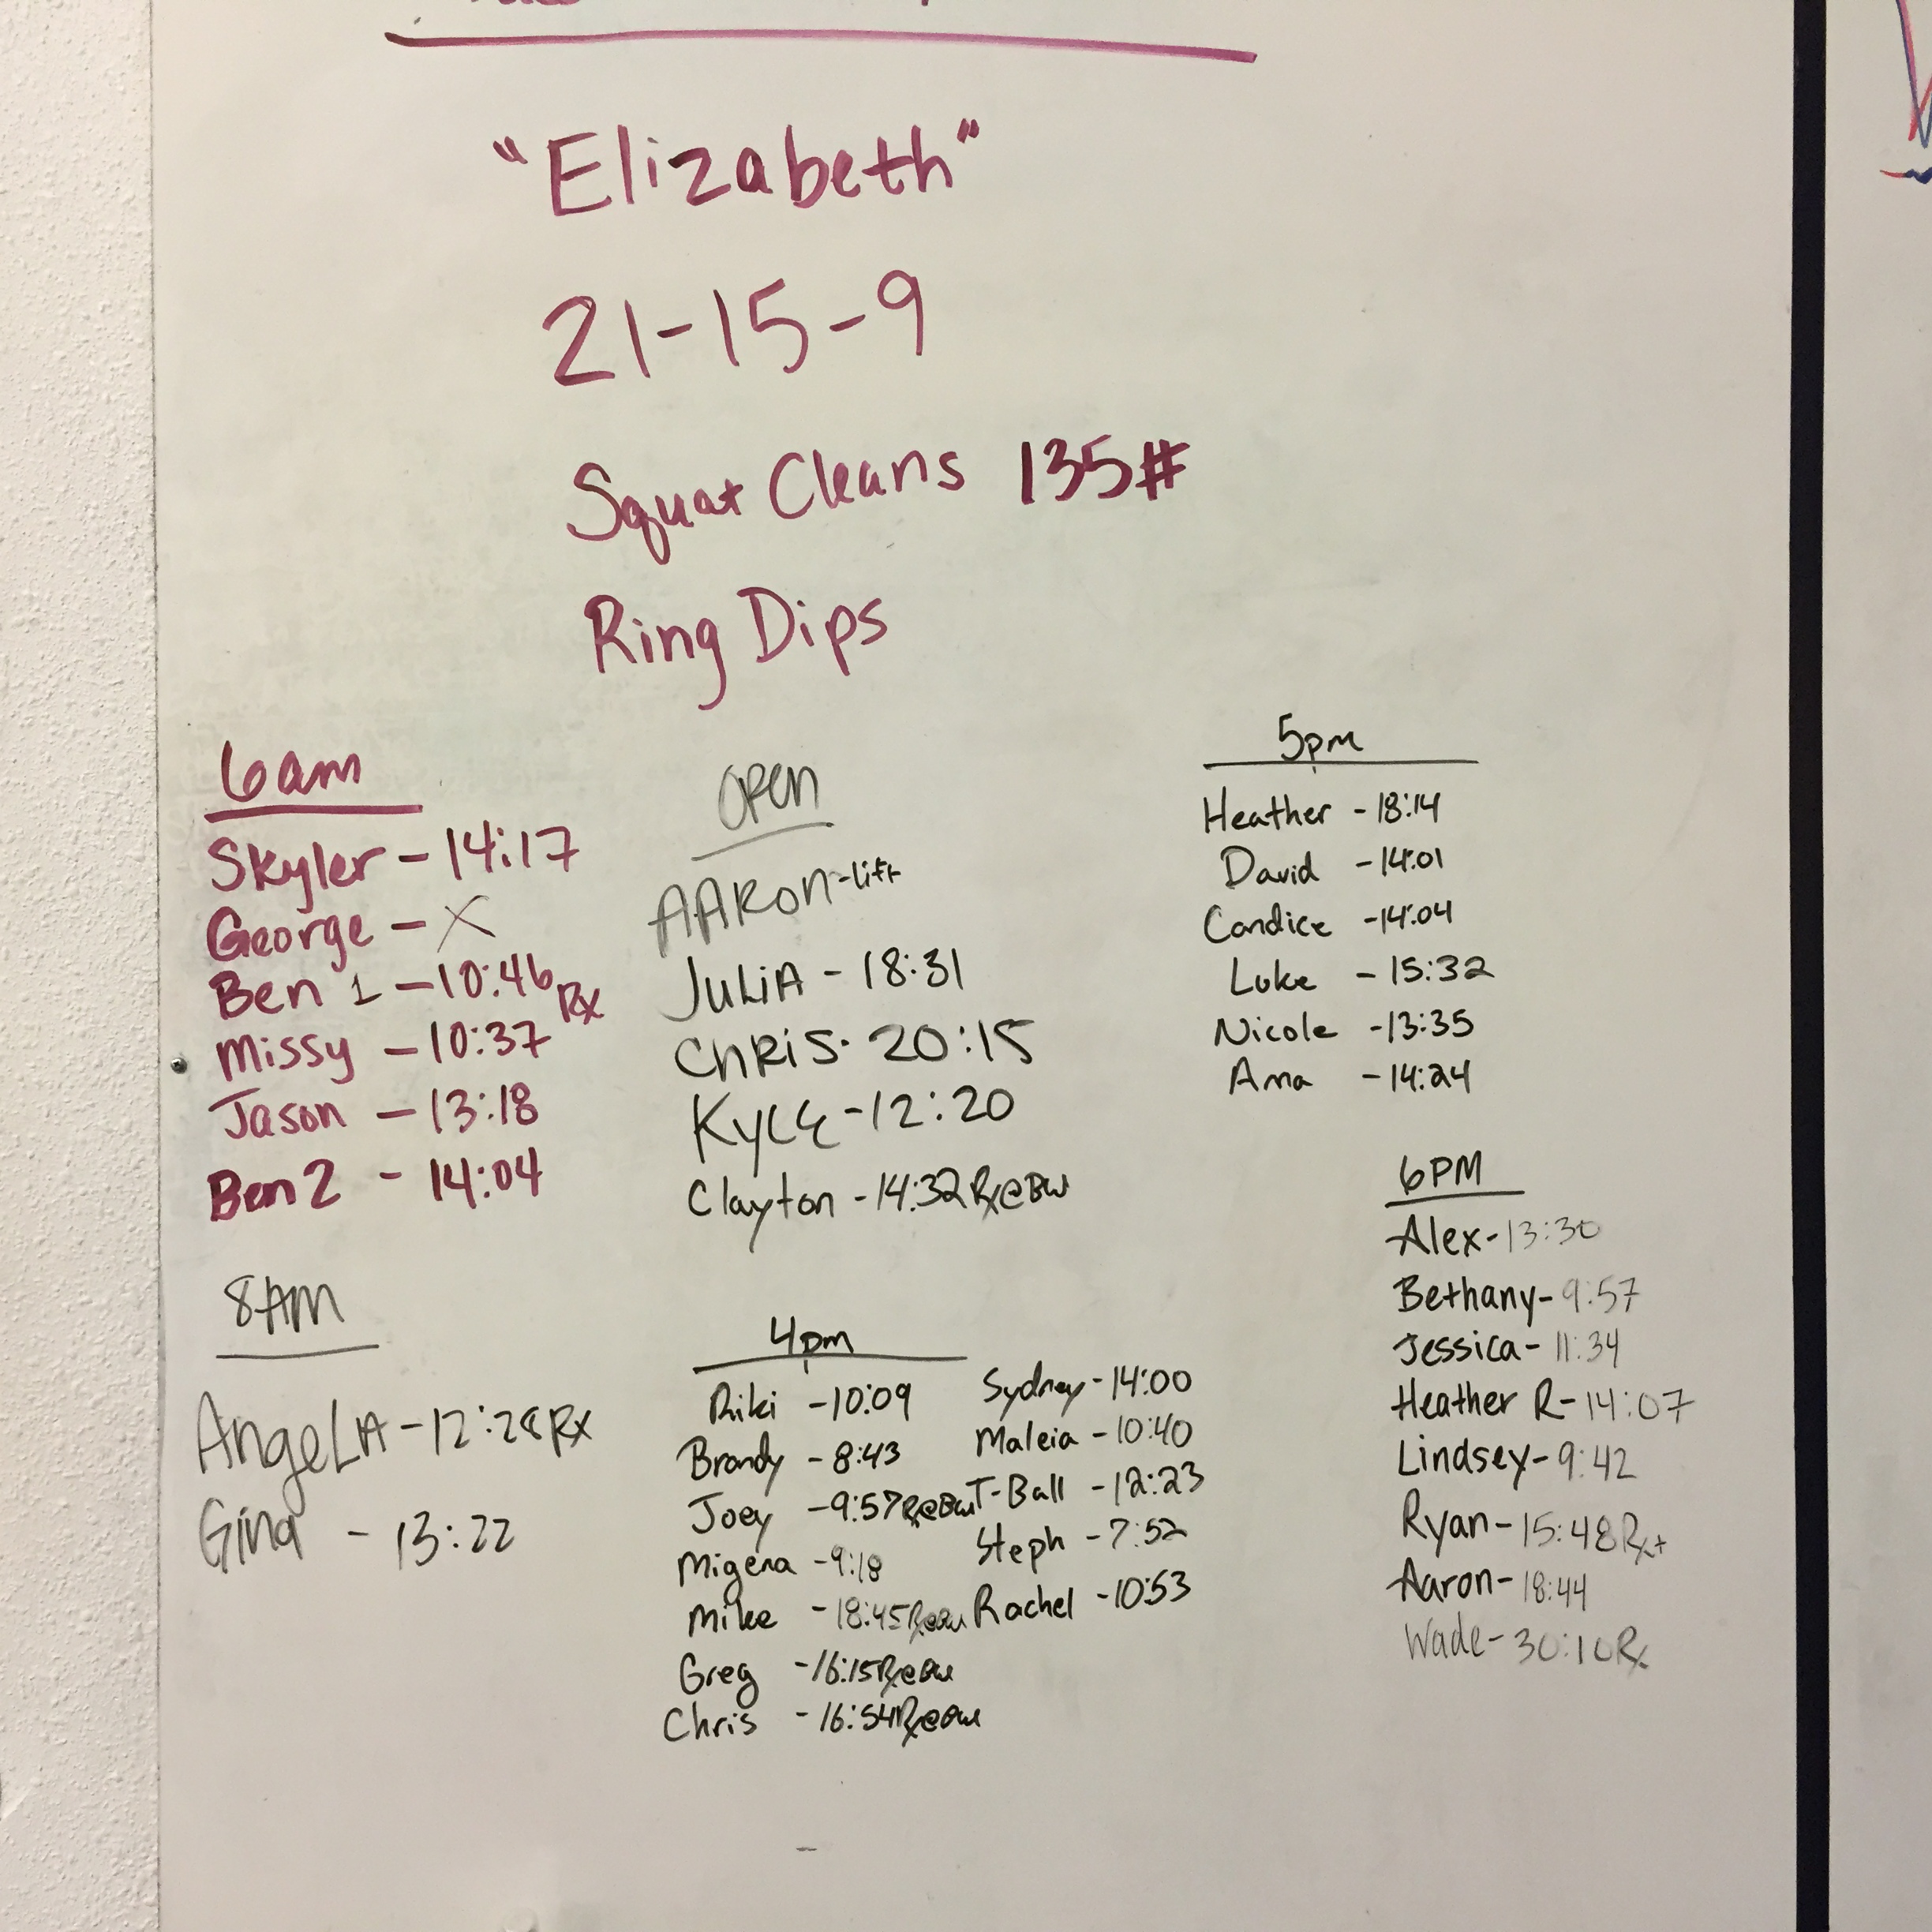 "Elizabeth"
21-15-9
Squat Cleans 135#
Ring Dips
6am
Skyler - 14:17
George - X
Ben 1 - 10:46 Rx
Missy - 10:37
Jason - 13:18
Ben 2 - 14:04
8AM
AngeLiA - 12:28 Rx
Gina - 13:22
OPEN
AARON - lift
JULiA - 18:31
CHRiS · 20:15
KYLE - 12:20
Clayton - 14:32 Rx@BW
4pm
Riki - 10:09
Brandy - 8:43
Joey - 9:57 Rx@BW
Migena - 9:18
Mike - 18:45 Rx@BW
Greg - 16:15 Rx@BW
Chris - 16:54 Rx@BW
Sydney - 14:00
Maleia - 10:40
T-Ball - 12:23
Steph - 7:52
Rachel - 10:53
5pm
Heather - 18:14
David - 14:01
Candice - 14:04
Luke - 15:32
Nicole - 13:35
Ana - 14:24
6PM
Alex - 13:30
Bethany - 9:57
Jessica - 11:34
Heather R - 14:07
Lindsey - 9:42
Ryan - 15:48 Rx+
Aaron - 18:44
Wade - 30:10 Rx